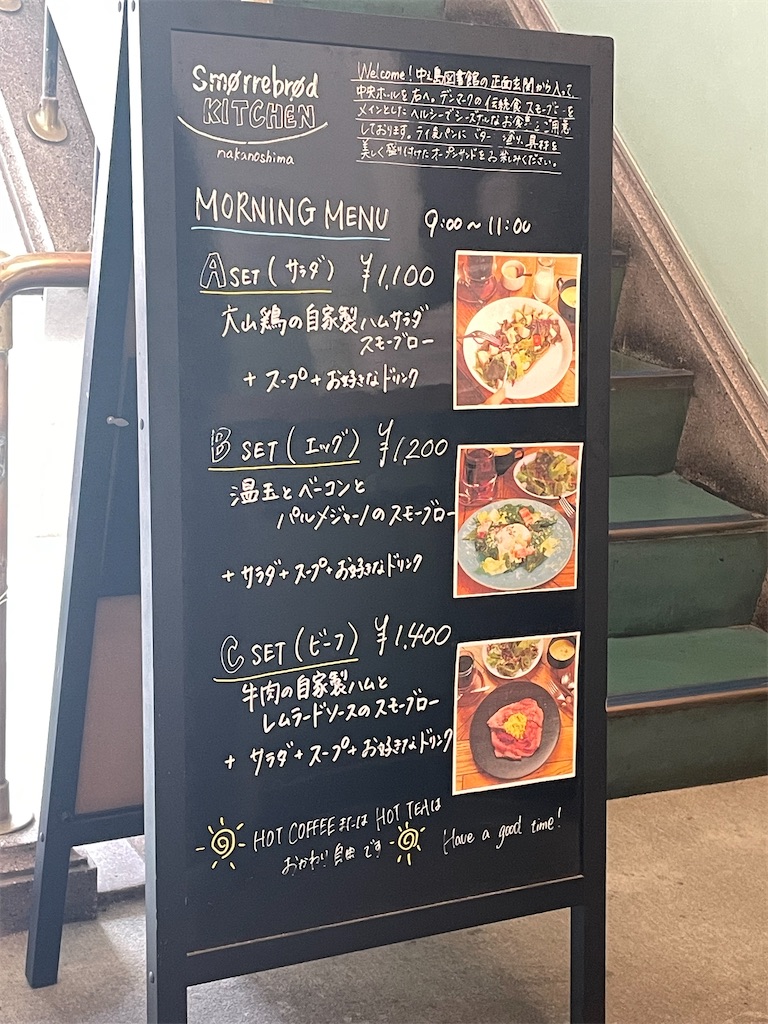 Smørrebrød
KITCHEN
nakanoshima
Welcome! 中之島図書館の正面玄関から入って
中央ホールを右へ。デンマークの伝統食 スモーブローを
メインとした ヘルシーでシーズナルな お食事をご用意
しております。ライ麦パンに バターを塗り、具材を
美しく盛り付けた オープンサンドをお楽しみください。
MORNING MENU 9:00~11:00
A SET (サラダ) ¥1,100
大山鶏の自家製ハムサラダ
スモーブロー
+ スープ + お好きなドリンク
B SET (エッグ) ¥1,200
温玉とベーコンと
パルメジャーノのスモーブロー
+ サラダ + スープ + お好きなドリンク
C SET (ビーフ) ¥1,400
牛肉の自家製ハムと
レムラードソースのスモーブロー
+ サラダ + スープ + お好きなドリンク
HOT COFFEE または HOT TEAは
おかわり自由です
Have a good time!